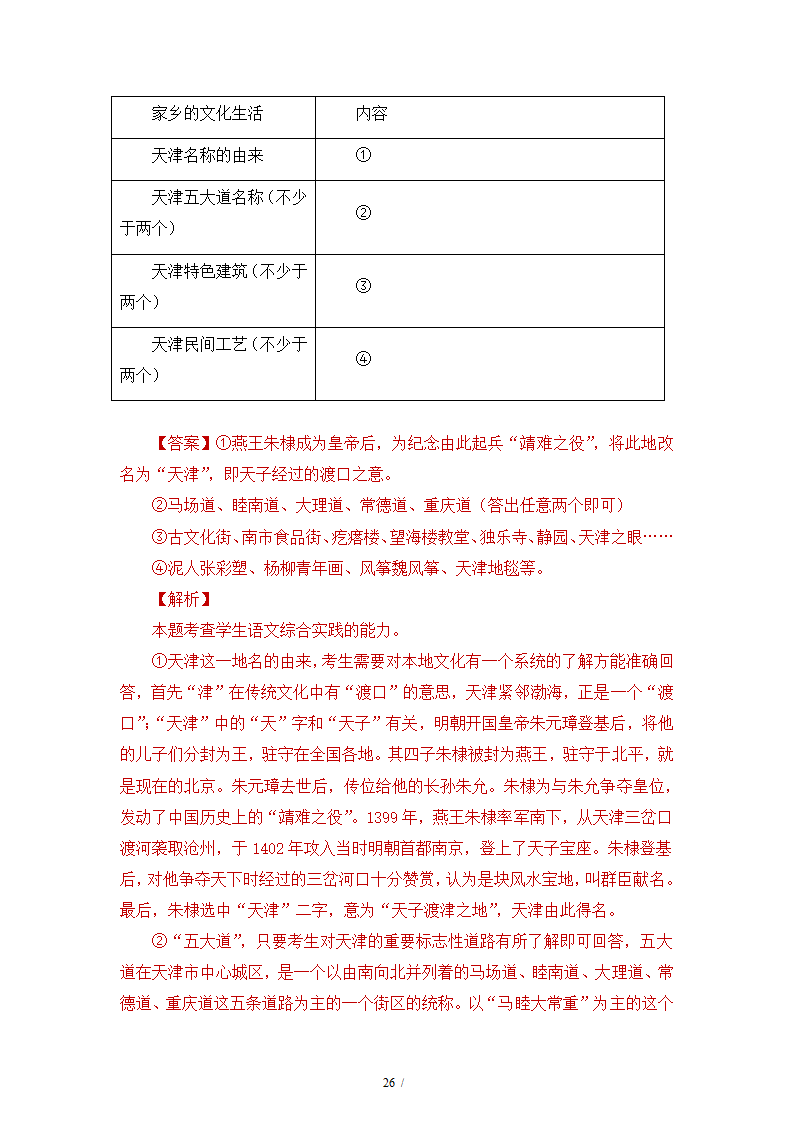 家乡的文化生活 内容
天津名称的由来 ①
天津五大道名称（不少
于两个） ②
天津特色建筑（不少于
两个） ③
天津民间工艺（不少于
两个） ④
【答案】①燕王朱棣成为皇帝后，为纪念由此起兵“靖难之役”，将此地改
名为“天津”，即天子经过的渡口之意。
②马场道、睦南道、大理道、常德道、重庆道（答出任意两个即可）
③古文化街、南市食品街、疙瘩楼、望海楼教堂、独乐寺、静园、天津之眼……
④泥人张彩塑、杨柳青年画、风筝魏风筝、天津地毯等。
【解析】
本题考查学生语文综合实践的能力。
①天津这一地名的由来，考生需要对本地文化有一个系统的了解方能准确回
答，首先“津”在传统文化中有“渡口”的意思，天津紧邻渤海，正是一个“渡
口”；“天津”中的“天”字和“天子”有关，明朝开国皇帝朱元璋登基后，将他
的儿子们分封为王，驻守在全国各地。其四子朱棣被封为燕王，驻守于北平，就
是现在的北京。朱元璋去世后，传位给他的长孙朱允。朱棣为与朱允争夺皇位，
发动了中国历史上的“靖难之役”。1399 年，燕王朱棣率军南下，从天津三岔口
渡河袭取沧州，于 1402 年攻入当时明朝首都南京，登上了天子宝座。朱棣登基
后，对他争夺天下时经过的三岔河口十分赞赏，认为是块风水宝地，叫群臣献名。
最后，朱棣选中“天津”二字，意为“天子渡津之地”，天津由此得名。
②“五大道”，只要考生对天津的重要标志性道路有所了解即可回答，五大
道在天津市中心城区，是一个以由南向北并列着的马场道、睦南道、大理道、常
德道、重庆道这五条道路为主的一个街区的统称。以“马睦大常重”为主的这个
26 /